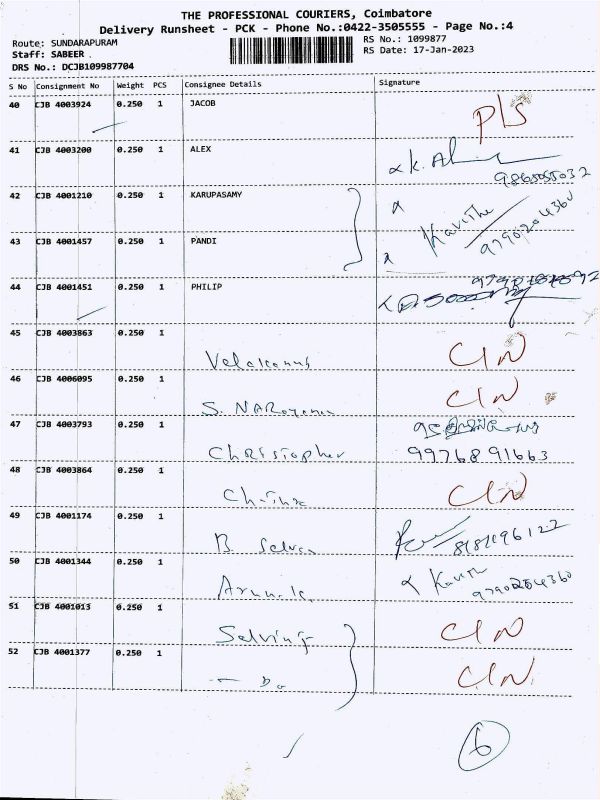 THE PROFESSIONAL COURIERS, Coimbatore
Delivery Runsheet - PCK - Phone No.:0422-3505555 - Page No.:4
Route: SUNDARAPURAM
RS No.: 1099877
Staff: SABEER .
RS Date: 17-Jan-2023
DRS No.: DCJB109987704
S No Consignment No Weight PCS Consignee Details Signature
40 CJB 4003924 0.250 1 JACOB P/S
41 CJB 4003200 0.250 1 ALEX
42 CJB 4001210 0.250 1 KARUPASAMY Kavitha
43 CJB 4001457 0.250 1 PANDI 9790204360
44 CJB 4001451 0.250 1 PHILIP
45 CJB 4003863 0.250 1 CIN
46 CJB 4006095 0.250 1 S. NARayanan CIN
47 CJB 4003793 0.250 1 Christopher 9976891663
48 CJB 4003864 0.250 1 CIN
49 CJB 4001174 0.250 1 B. Selvan
50 CJB 4001344 0.250 1 Kavitha
51 CJB 4001013 0.250 1 CIN
52 CJB 4001377 0.250 1 Do CIN
6